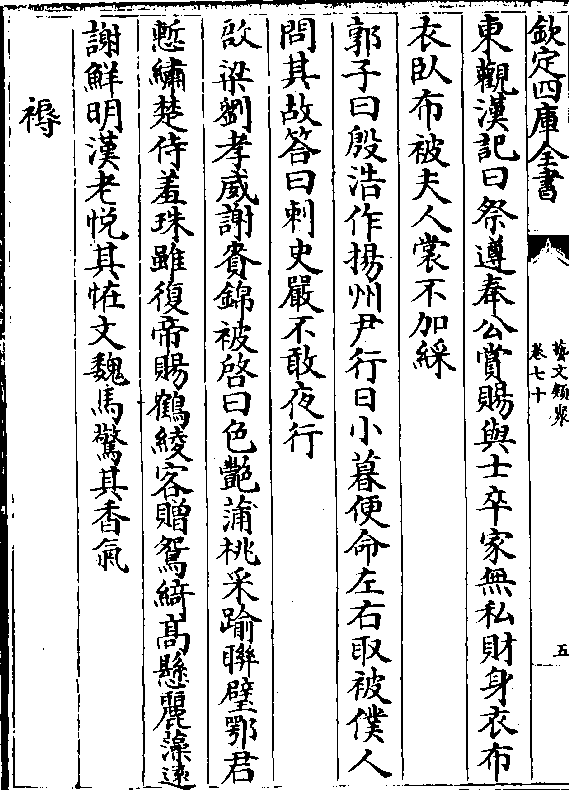 欽定四庫全書
藝文類聚
卷七十
五
東觀漢記曰祭遵奉公賞賜與士卒家無私財身衣布
衣臥布被夫人裳不加綵
郭子曰殷浩作揚州尹行日小暮便命左右取被僕人
問其故答曰刺史嚴不敢夜行
啟梁劉孝威謝賚錦被啓曰色艷蒲桃采踰聯璧鄂君
慙繡楚侍羞珠雖復帝賜鶴綾客贈鴛綺高懸麗藻遠
謝鮮明漢老悅其恠文魏馬驚其香氣
褥